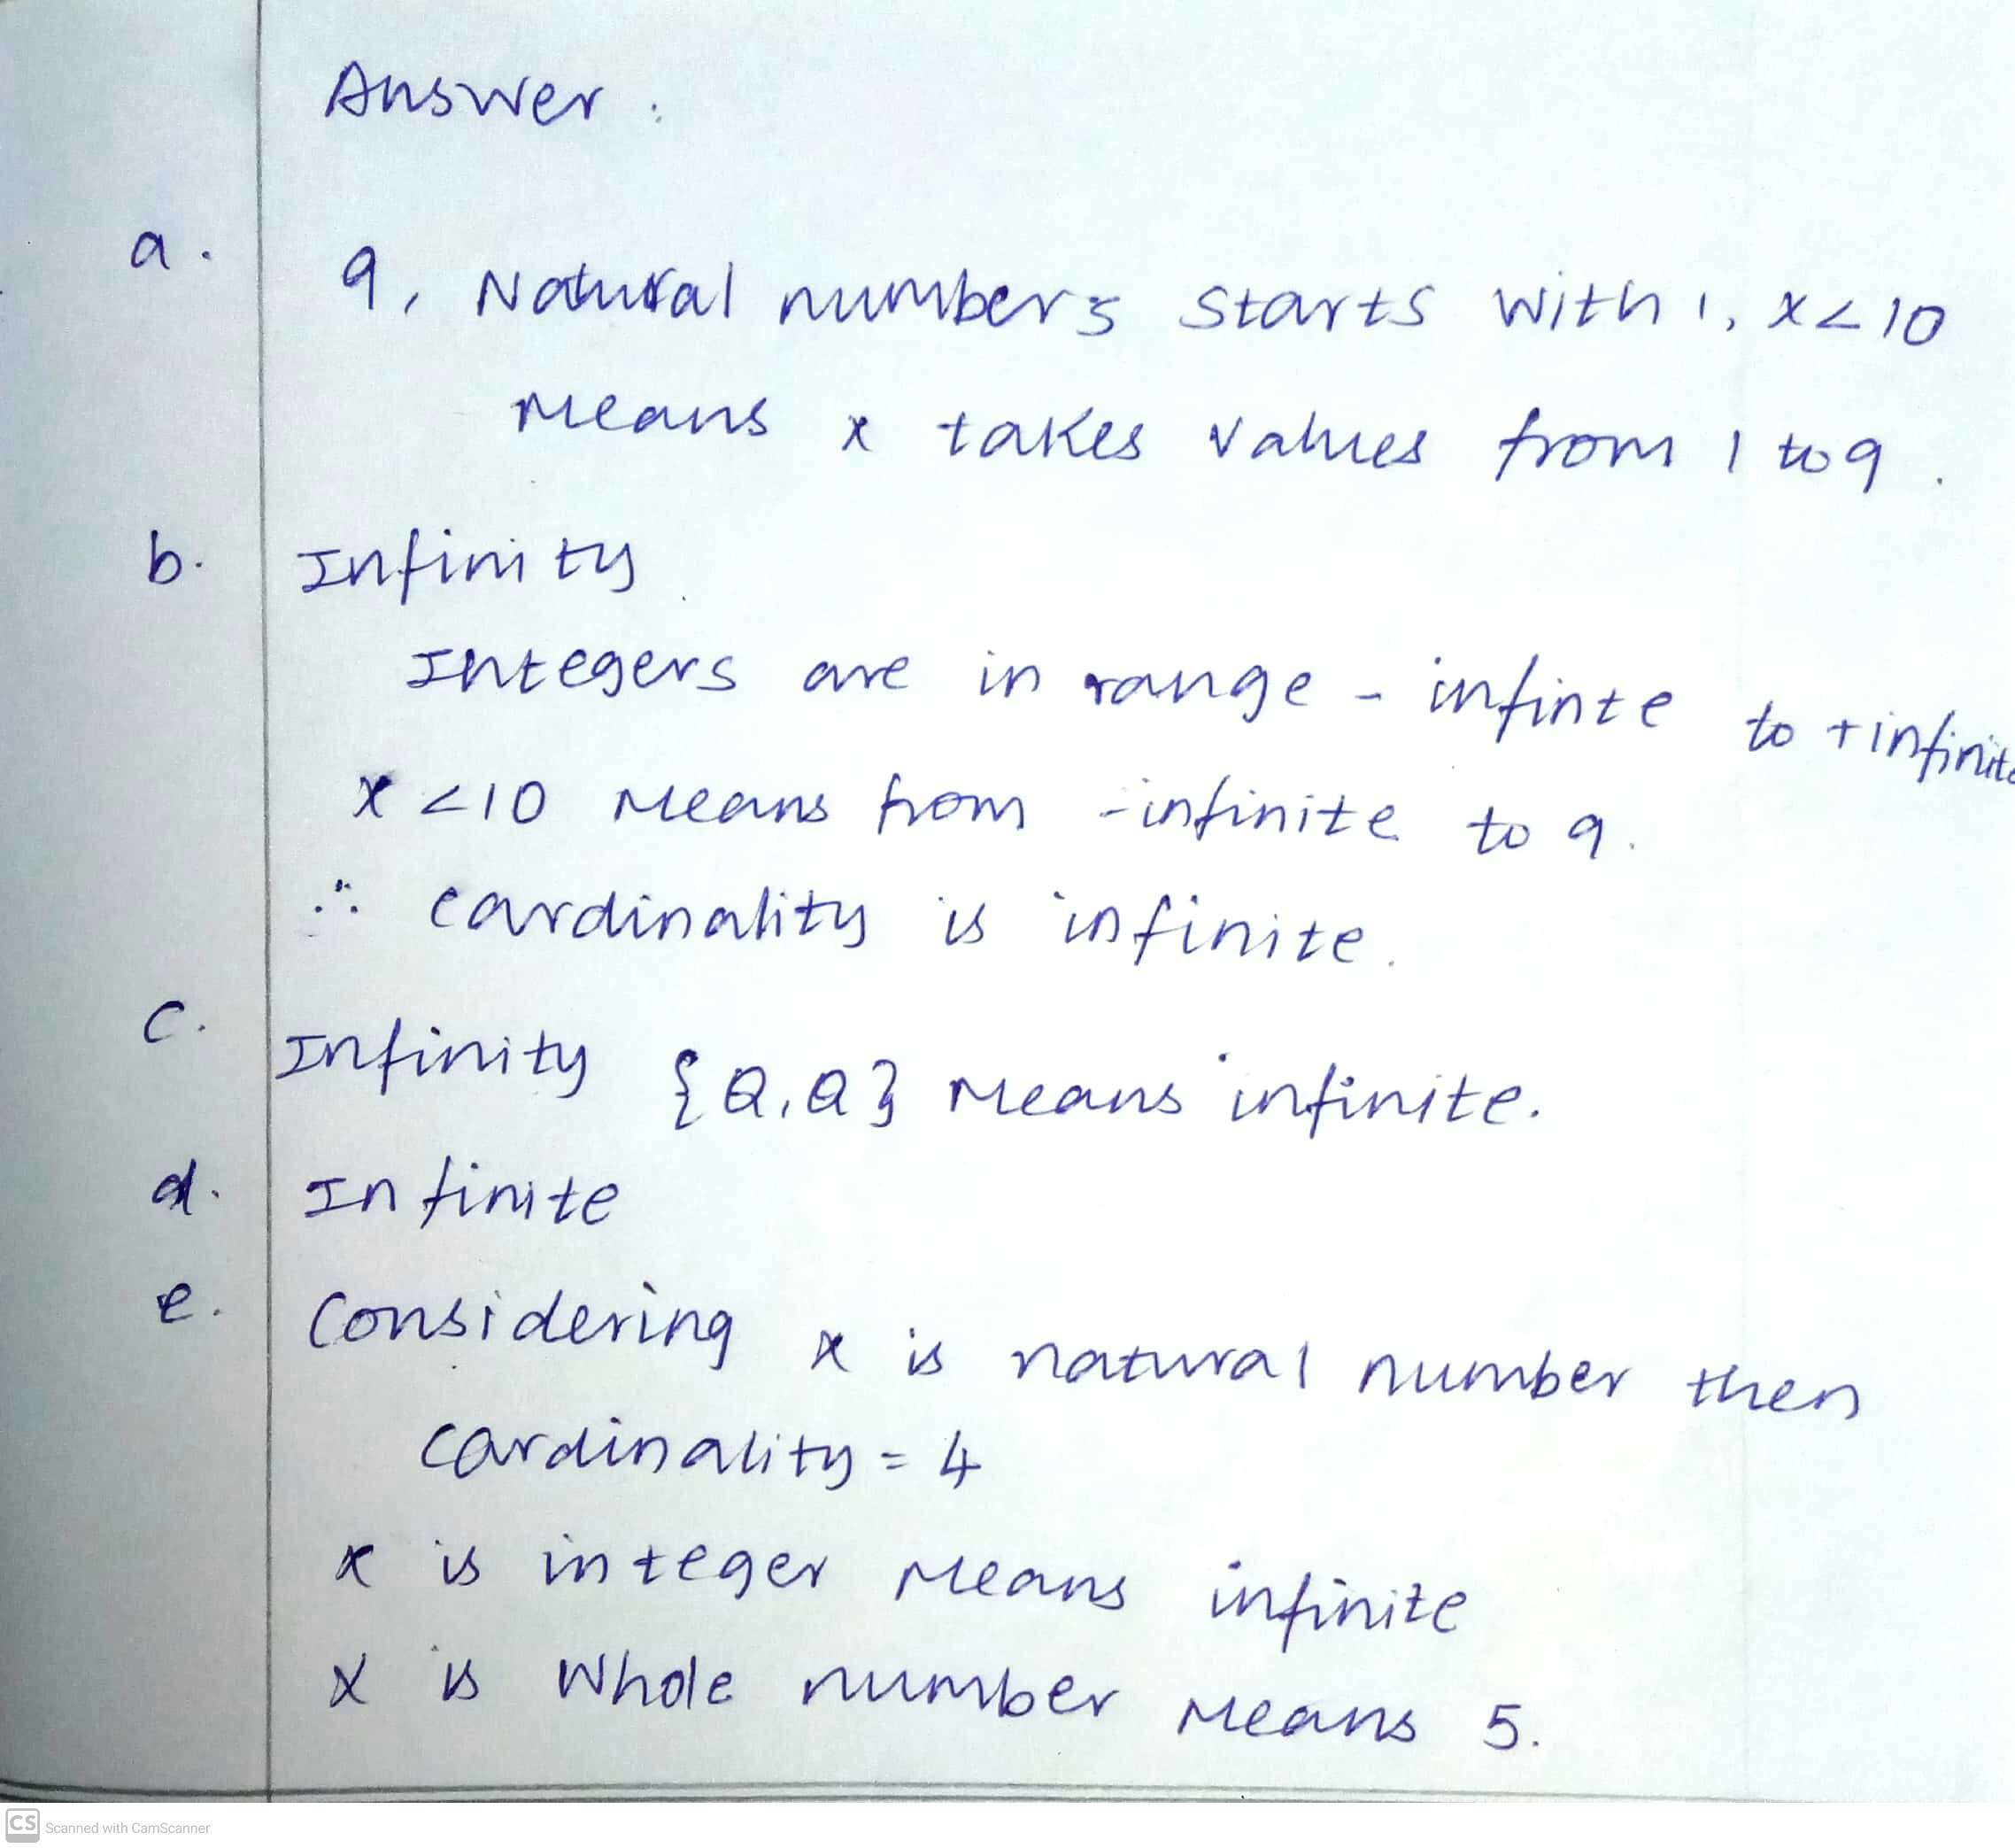 Answer :
a. 9, Natural numbers starts with 1, x<10
means x takes values from 1 to 9.
b. Infinity
Integers are in range - infinte to + infinite
x <10 means from -infinite to 9.
∴ cardinality is infinite.
c. Infinity {Q,Q} means infinite.
d. Infinite
e. Considering x is natural number then
cardinality = 4
x is integer means infinite
x is whole number means 5.
CS Scanned with CamScanner